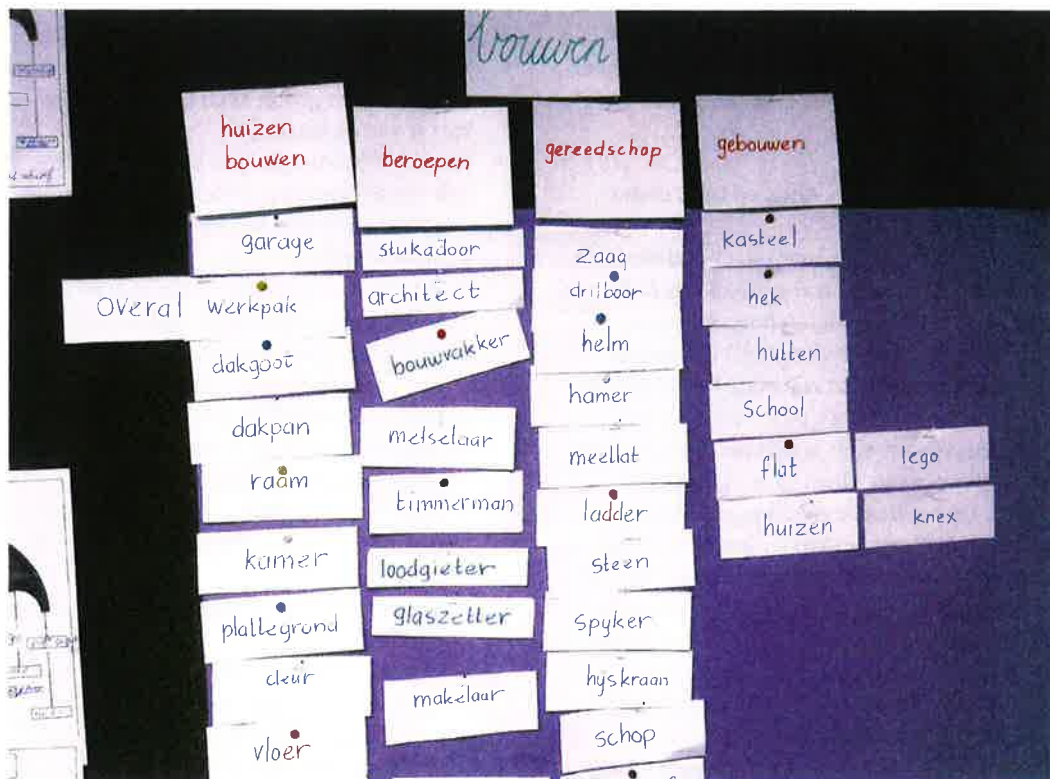 bouwen
huizen
bouwen
garage
Overal werkpak
dakgoot
dakpan
raam
kamer
plattegrond
deur
vloer
beroepen
stukadoor
architect
bouwvakker
metselaar
timmerman
loodgieter
glaszetter
makelaar
gereedschap
zaag
drilboor
helm
hamer
meetlat
ladder
steen
spyker
hyskraan
schop
gebouwen
kasteel
hek
hutten
School
flat
huizen
lego
knex